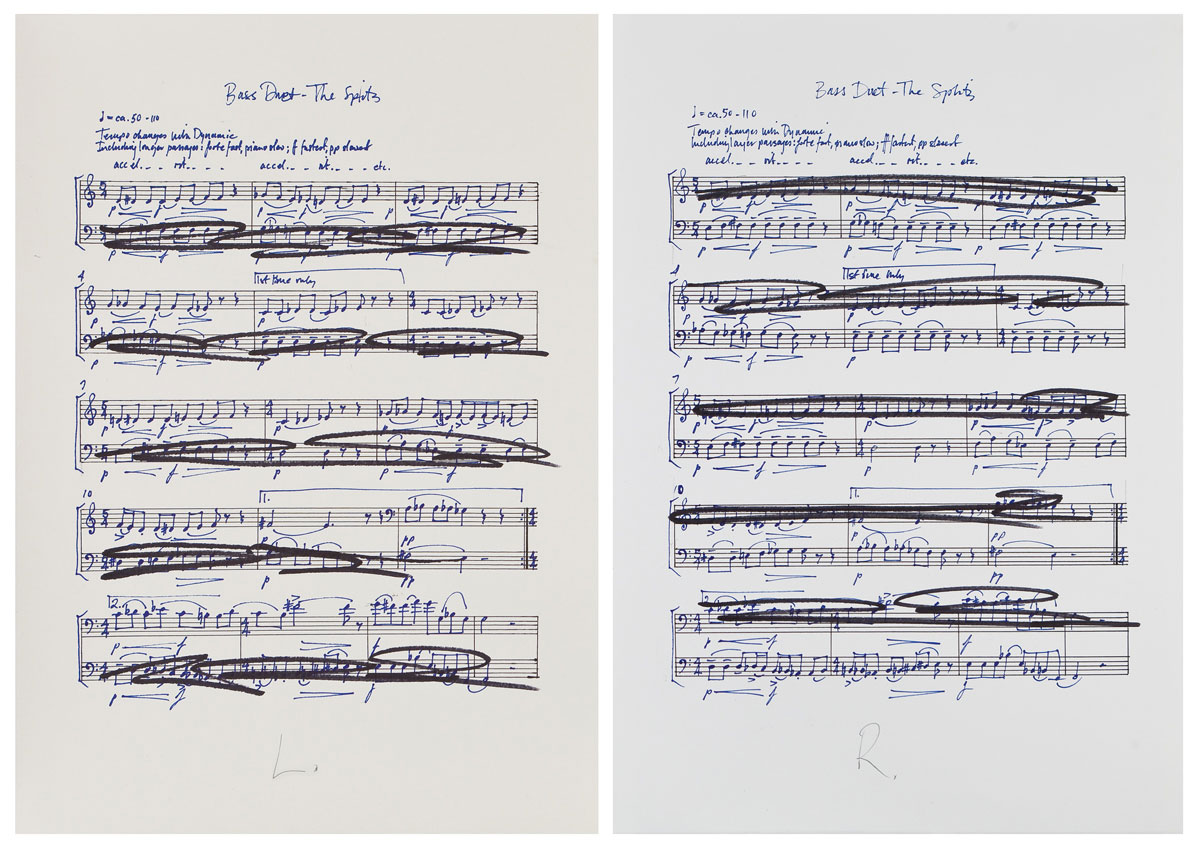 Bass Duet - The Splits
♩ = ca. 50 - 110
Tempo changes with Dynamic
Including longer passages: forte fast, piano slow; ff fastest, pp slowest
accel. _ _ rit. . . . . accel. . . . rit. . . . . etc.
p f p f p f
p f p f p f
4
1st time only
p f p
p f p f
7
p f p p f
p f p f
10
1.
p pp
p pp
2.
p f f
p f f
L.
Bass Duet - The Splits
♩ = ca. 50 - 110
Tempo changes with Dynamic
Including longer passages: forte fast, piano slow; ff fastest, pp slowest
accel. _ _ rit. . . . . accel. . . . rit. . . . . etc.
p f p f p f
4
1st time only
p f p f
7
p f p p f
10
1.
p pp
p pp
2.
p f f
p f f
R.